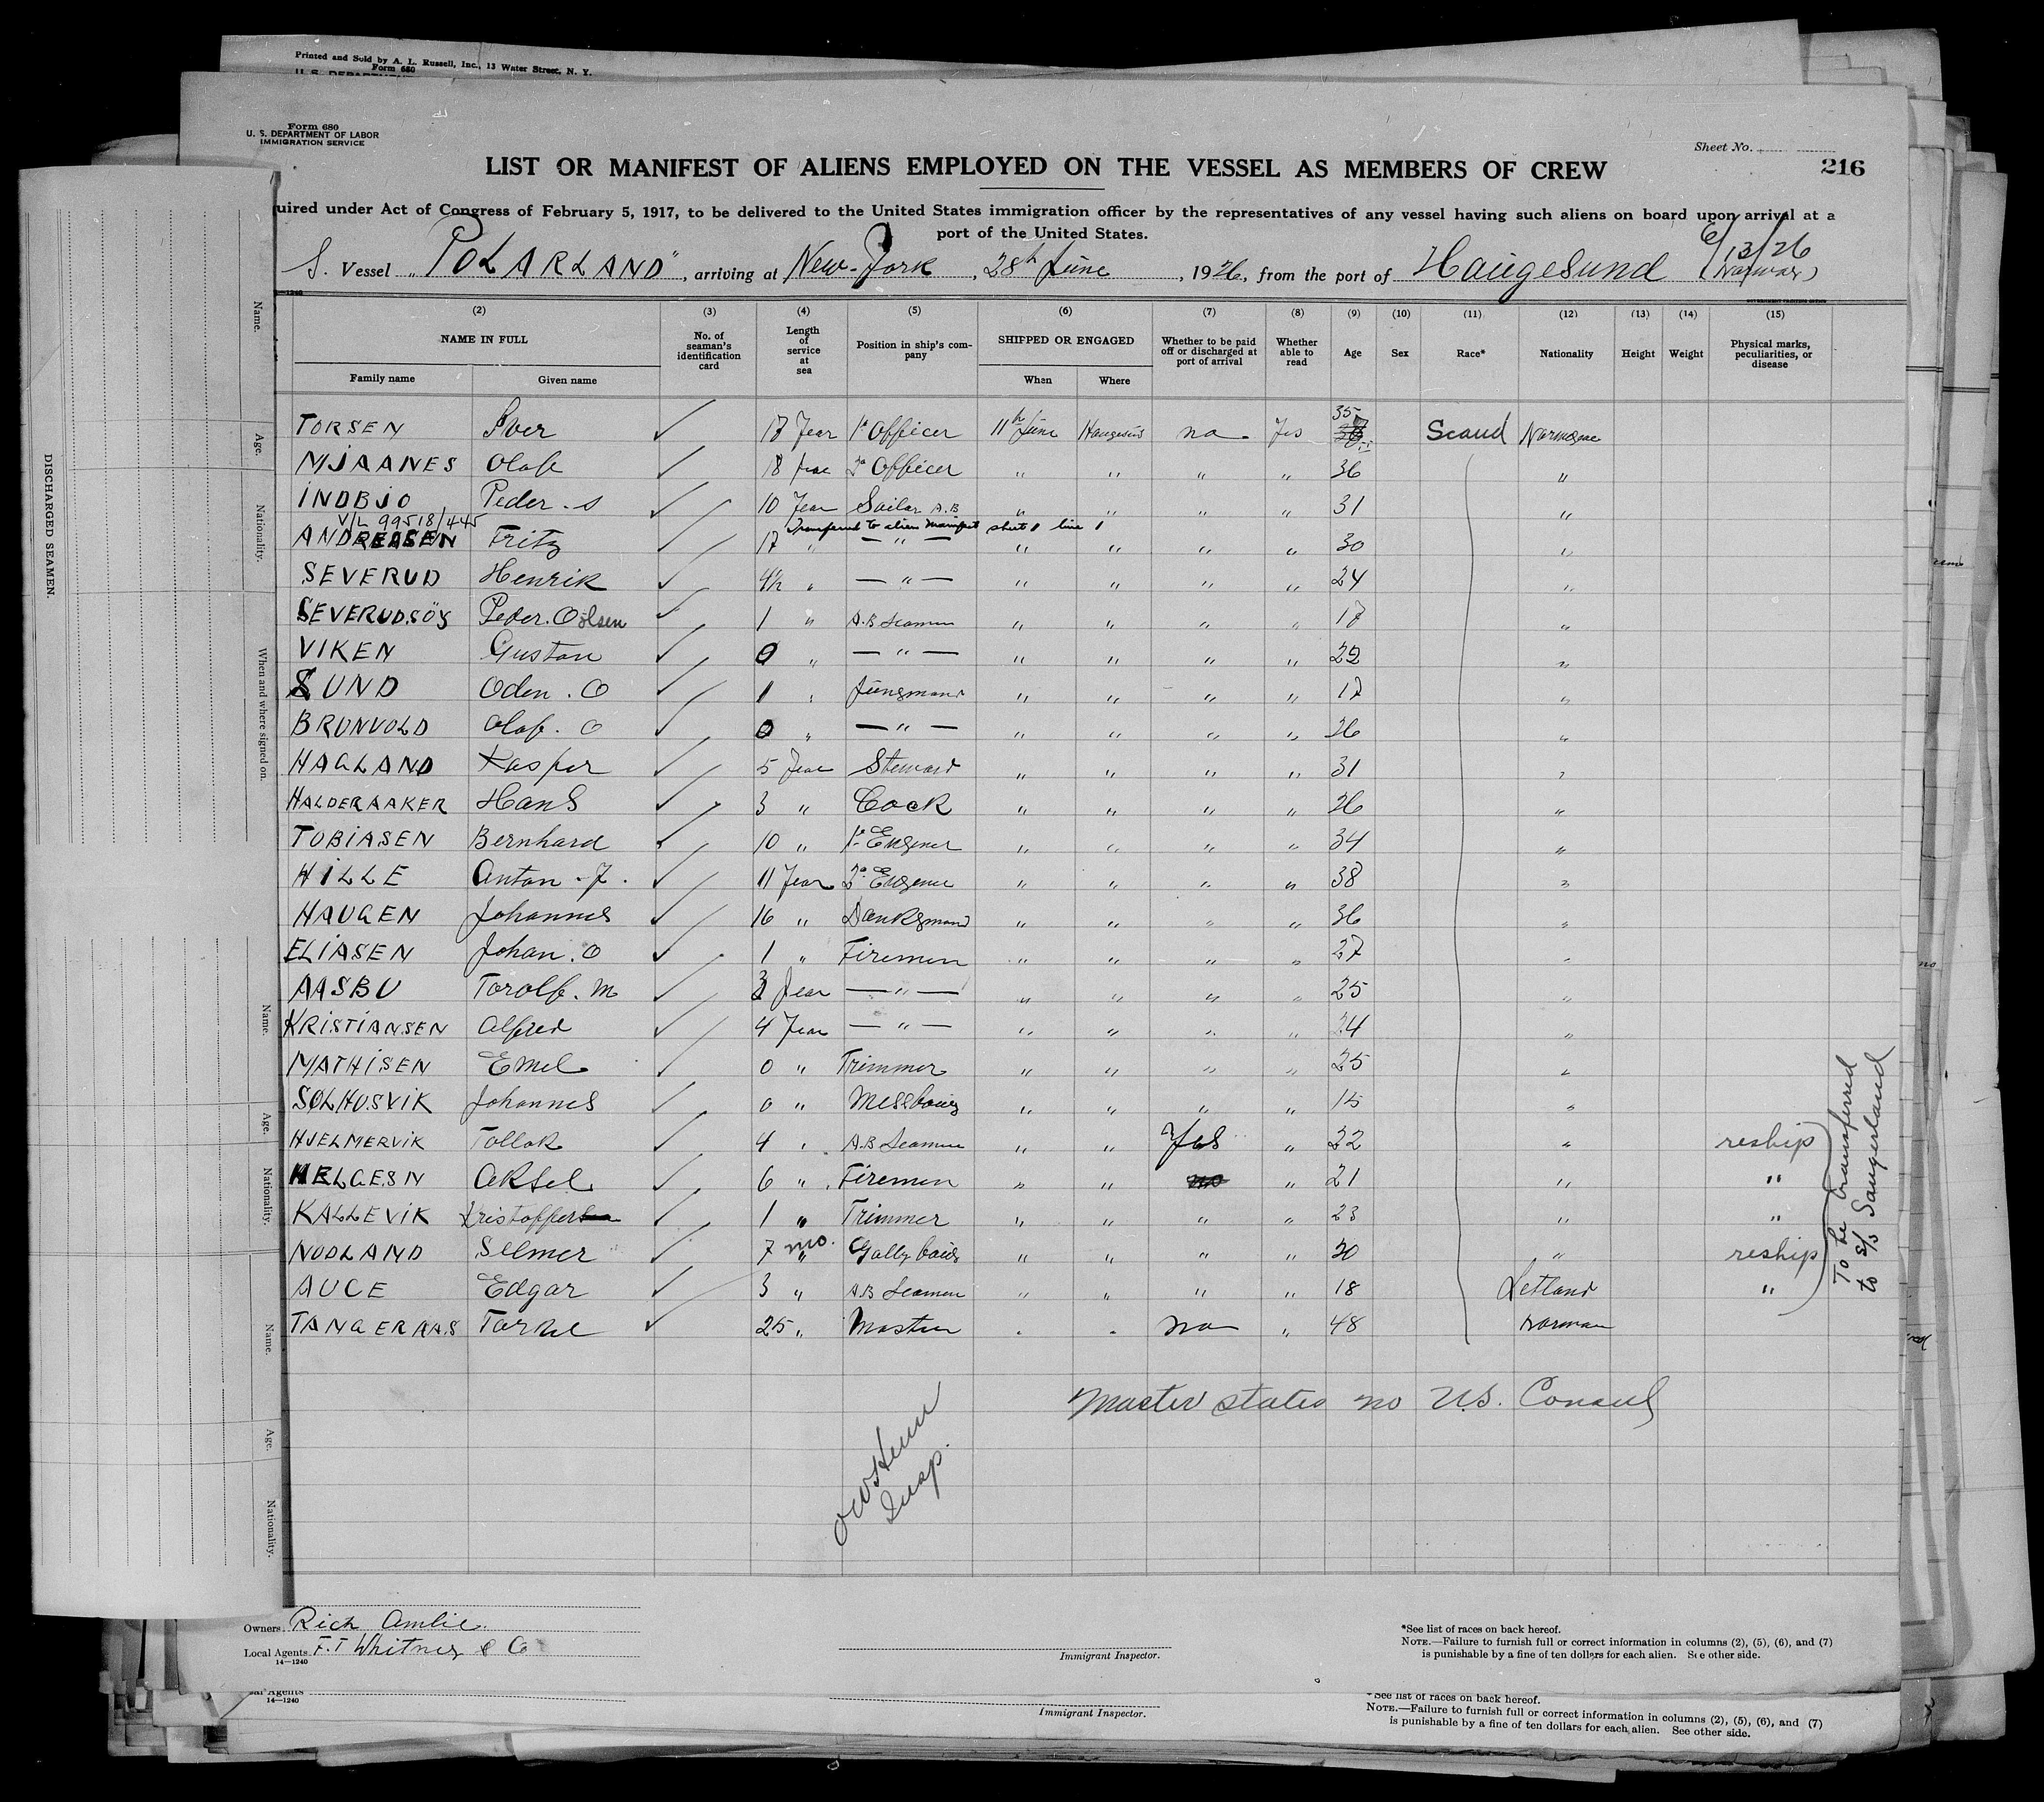 Printed and Sold by A. L. Russell, Inc., 13 Water Street, N. Y.
Form 680
Form 680
U. S. DEPARTMENT OF LABOR
IMMIGRATION SERVICE
Sheet No.
LIST OR MANIFEST OF ALIENS EMPLOYED ON THE VESSEL AS MEMBERS OF CREW
216
uired under Act of Congress of February 5, 1917, to be delivered to the United States immigration officer by the representatives of any vessel having such aliens on board upon arrival at a
port of the United States.
6/13/26
S. Vessel "POLARLAND", arriving at New-York, 28h June, 1926, from the port of Haugesund (Norway)
(2) (3) (4) (5) (6) (7) (8) (9) (10) (11) (12) (13) (14) (15)
NAME IN FULL No. of seaman's identification card Length of service at sea Position in ship's company SHIPPED OR ENGAGED Whether to be paid off or discharged at port of arrival Whether able to read Age Sex Race* Nationality Height Weight Physical marks, peculiarities, or disease
Family name Given name When Where
TORSEN Iver ✓ 18 Year 1e Officer 11h June Haugesund no Yes 35 Scand Norwegae
MJAANES Olaf ✓ 18 Year 2e Officer " " " " 36 "
INDBJO Peder. S ✓ 10 Year Sailor A.B " " " " 31 "
V/L 99518/445 Transferred to alien manifest sheet 1 line 1
ANDREASEN Fritz ✓ 17 " — " — " " " " 30 "
SEVERUD Henrik ✓ 4½ " — " — " " " " 24 "
SEVERUDSÖY Peder. Olsen ✓ 1 " A.B Seamen " " " " 17 "
VIKEN Gustav ✓ 0 " — " — " " " " 22 "
SUND Oden. O ✓ 1 " Jungmand " " " " 17 "
BRUNVOLD Olaf. O ✓ 0 " — " — " " " " 26 "
HAGLAND Kasper ✓ 5 Year Steward " " " " 31 "
HALDERAAKER Hans ✓ 3 " Cock " " " " 26 "
TOBIASEN Bernhard ✓ 10 " 1e Engener " " " " 34 "
HILLE Anton. J. ✓ 11 Year 2e Engener " " " " 38 "
HAUGEN Johannes ✓ 16 " Dankymand " " " " 36 "
ELIASEN Johan. O ✓ 1 " Firemen " " " " 27 "
AASBU Torolf. M ✓ 3 Year — " — " " " " 25 "
KRISTIANSEN Alfred ✓ 4 Year — " — " " " " 24 "
MATHISEN Emel ✓ 0 " Trimmer " " " " 25 "
SOLHUSVIK Johannes ✓ 0 " Messboug " " " " 15 "
HJELMERVIK Tollak ✓ 4 " A.B Seamen " " Yes " 22 " reship
HELGESN Aksel ✓ 6 " Firemen " " no " 21 " "
KALLEVIK Kristoffer ✓ 1 " Trimmer " " " " 23 " "
NODLAND Selmer ✓ 7 mo. Gallyboug " " " " 20 " reship
AUCE Edgar ✓ 3 " A.B Seamen " " " " 18 Letland "
TANGERAAS Torkel ✓ 25 " Master " " no " 48 Norman
To be transferred
to S/S Saugerland
Master states no U.S. Consul
Insp.
Owners Rich Amlie
Local Agents F.T Whitney & Co
14—1240
Immigrant Inspector.
*See list of races on back hereof.
NOTE.—Failure to furnish full or correct information in columns (2), (5), (6), and (7)
is punishable by a fine of ten dollars for each alien. See other side.
14—1240
Immigrant Inspector.
*See list of races on back hereof.
NOTE.—Failure to furnish full or correct information in columns (2), (5), (6), and (7)
is punishable by a fine of ten dollars for each alien. See other side.
DISCHARGED SEAMEN.
Name.
Age.
Nationality.
When and where signed on.
Name.
Age.
Nationality.
Name.
Age.
Nationality.